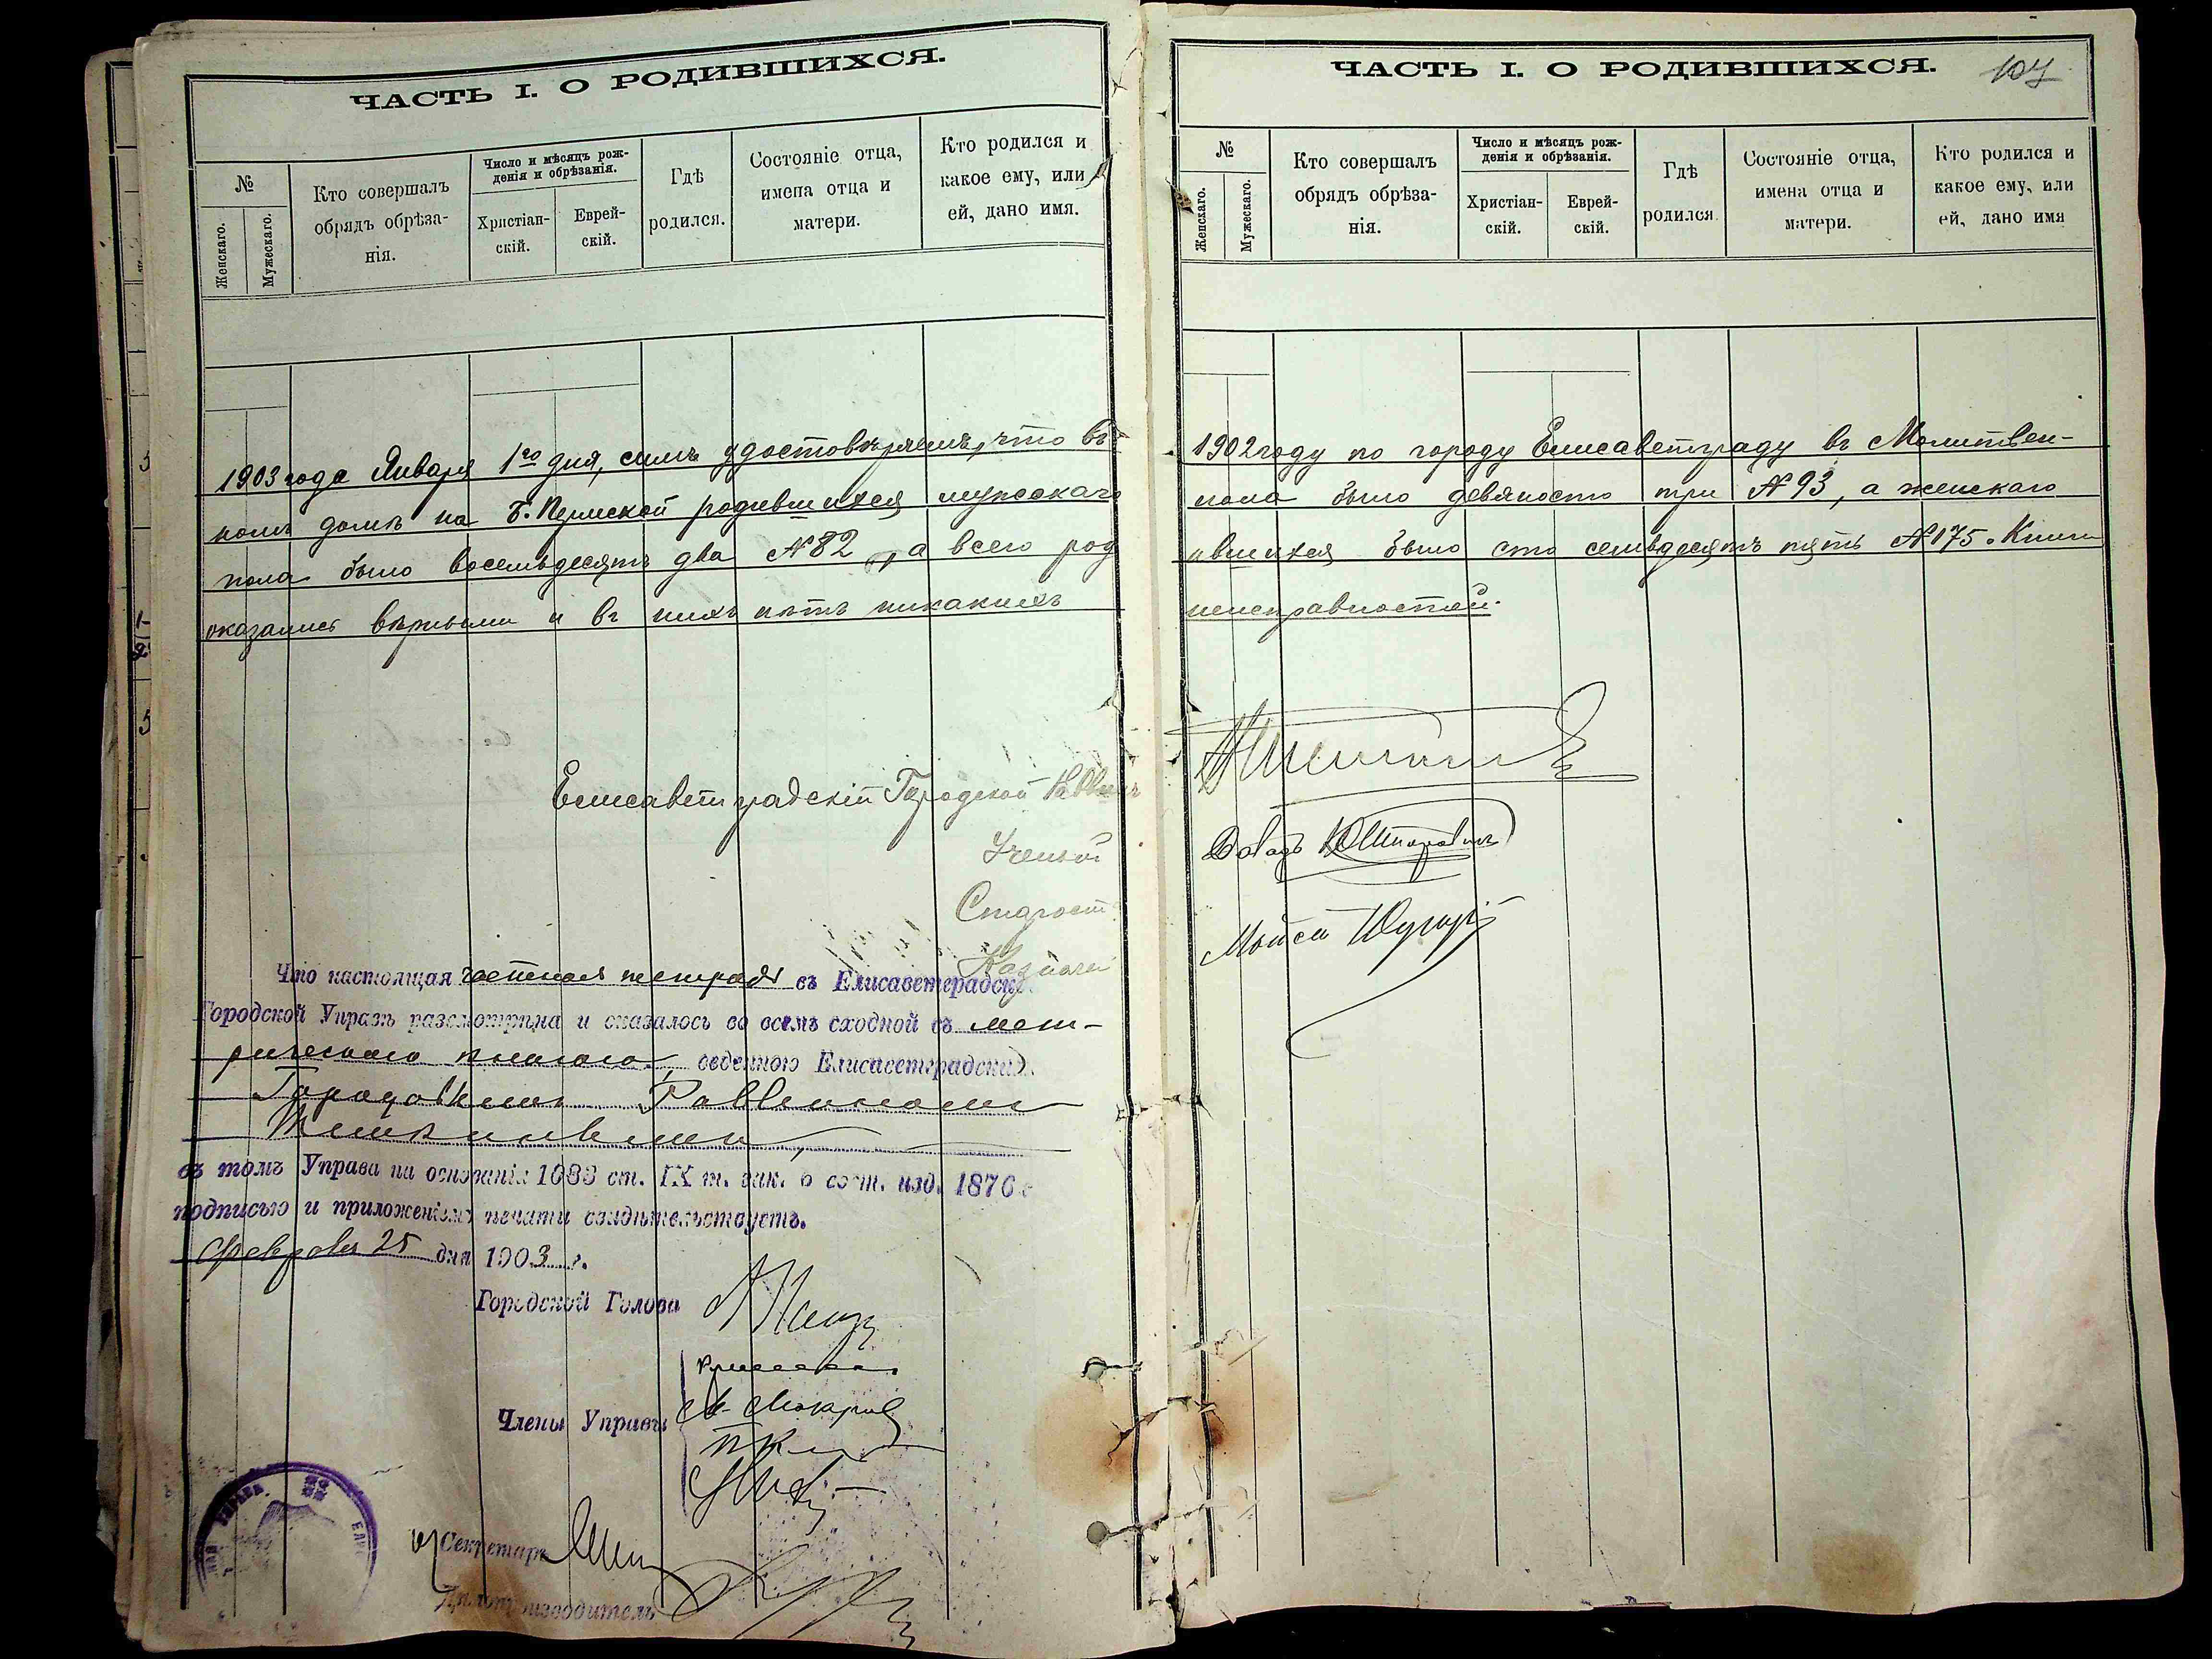 ЧАСТЬ I. О РОДИВШИХСЯ.
№
Женскаго.
Мужескаго.
Кто совершалъ
обрядъ обрѣза-
нія.
Число и мѣсяцъ рож-
денія и обрѣзанія.
Христіан-
скій.
Еврей-
скій.
Гдѣ
родился.
Состояніе отца,
имена отца и
матери.
Кто родился и
какое ему, или
ей, дано имя.
1903 года Января 1го дня, симъ удостовѣряемъ, что въ
номъ домѣ на Б. Пермской родившихся мужскаго
пола было восемьдесятъ два №82, а всего род
оказались вѣрными и въ нихъ нѣтъ никакихъ
Елисаветградскій Городской Раввинъ
Ученый
Старост
Казначей
Что настоящая тетрадь въ Елисаветградск
Городской Управѣ разсмотрѣна и оказалось во всемъ сходной съ мет-
рическою книгою, веденною Елисаветградским
Городовымъ Раввиномъ
въ томъ Управа на основаніи 1083 ст. IX т. зак. о сост. изд. 1876 г
подписью и приложеніемъ печати свидѣтельствуетъ.
Февраля 25 дня 1903 г.
Городской Голова
Члены Управы
Секретарь
Дѣлопроизводитель
ЧАСТЬ I. О РОДИВШИХСЯ.
107
№
Женскаго.
Мужескаго.
Кто совершалъ
обрядъ обрѣза-
нія.
Число и мѣсяцъ рож-
денія и обрѣзанія.
Христіан-
скій.
Еврей-
скій.
Гдѣ
родился.
Состояніе отца,
имена отца и
матери.
Кто родился и
какое ему, или
ей, дано имя
1902 году по городу Елисаветграду въ Молитвен-
пола было девяносто три №93, а женскаго
ившихся было сто семьдесятъ пять №175. Книги
неисправностей.
Довидъ
Мойсей